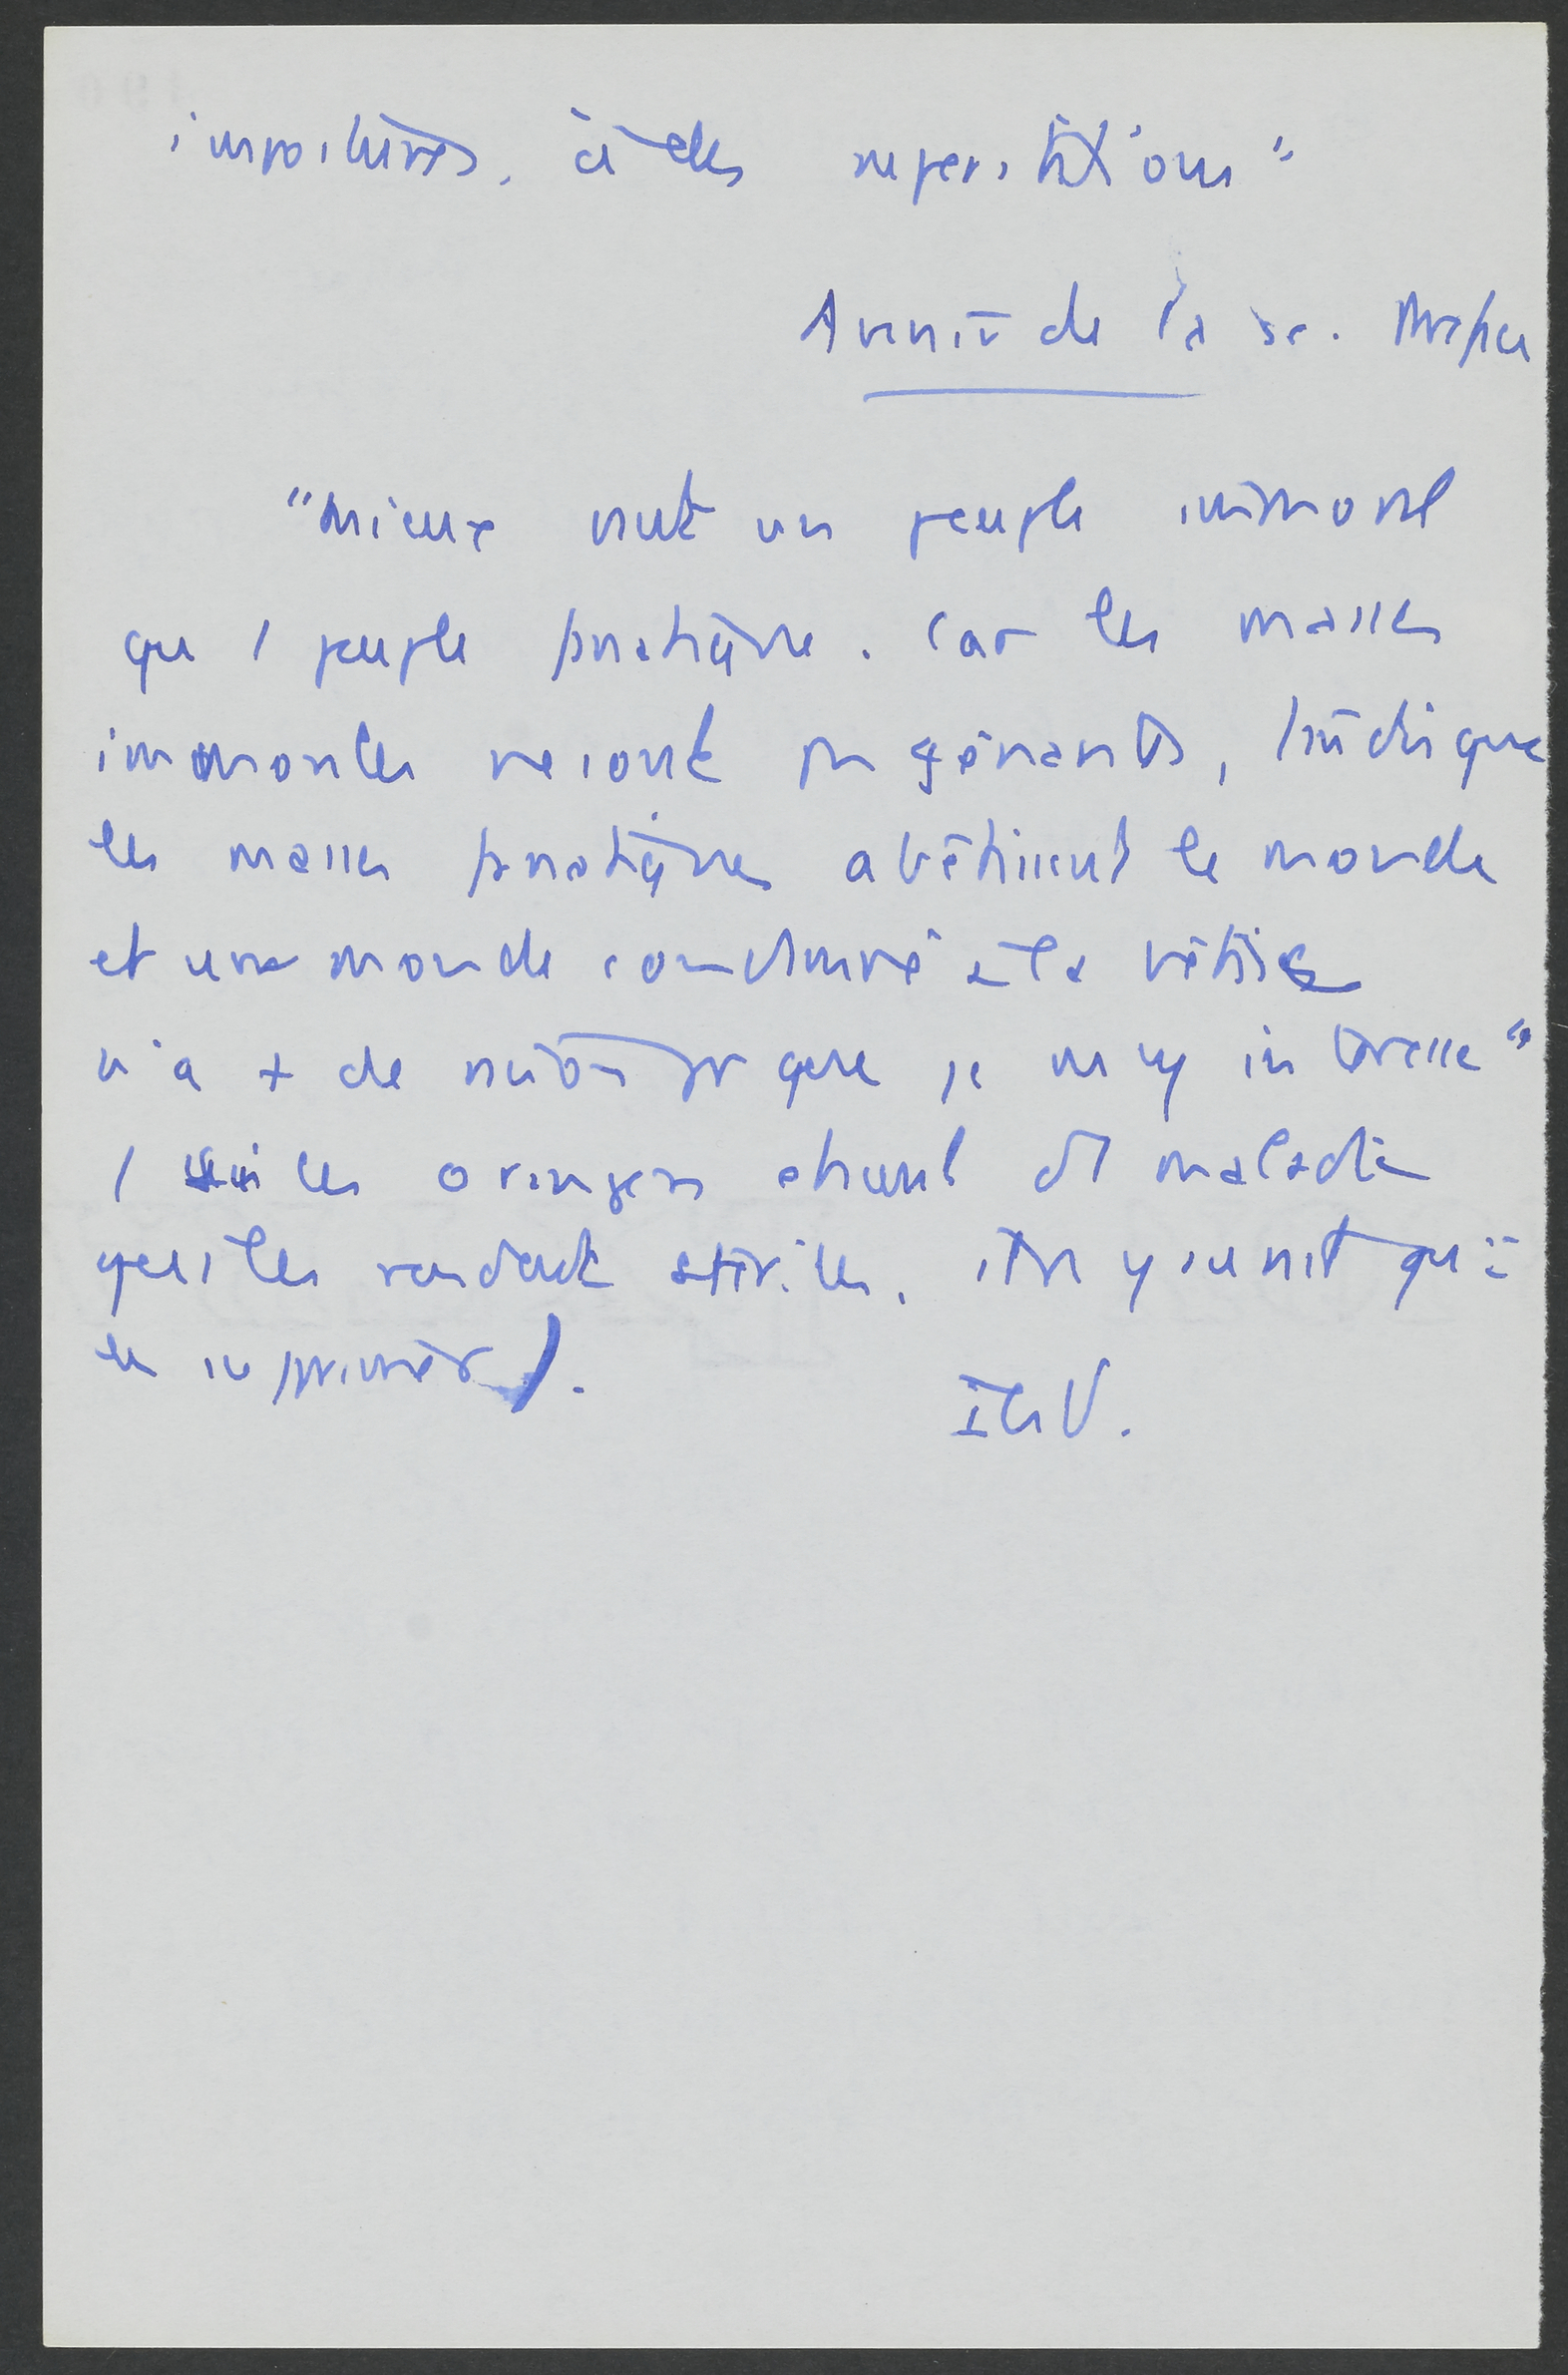 impostures, à des superstitions"
Avenir de la sc. Préface
"Mieux vaut un peuple immoral
qu' 1 peuple fanatique. Car les masses
immorales ne sont pas gênantes, tandis que
les masses fanatiques abêtissent le monde
et un monde condamné à la bêtise
n'a + de raison pr que je m'y intéresse"
/ les orangers atteints maladie
qui les rendait stériles. On y
les supprimer).
Id V.